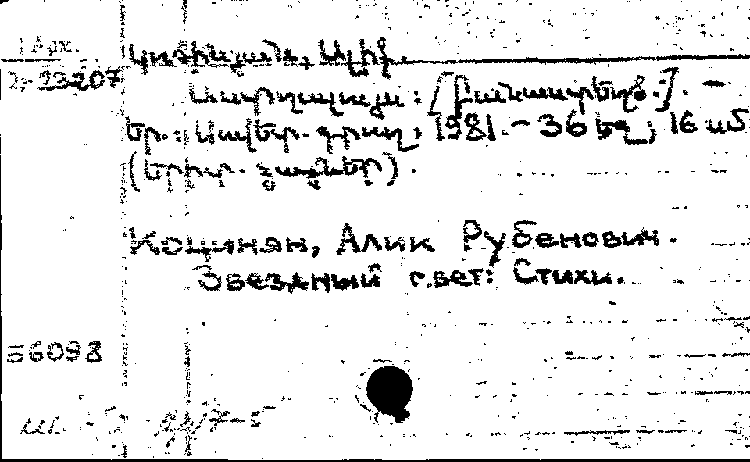 Կոշինյան, Ալիկ.
23207
Աստղալույս: [Բանաստեղծ.]. —
Եր.: Սովետ. գրող, 1981. — 36 եզ; 16 սմ
(Երիտ. ձայներ).
Кошинян, Алик Рубенович.
Звездный свет: Стихи.
6098